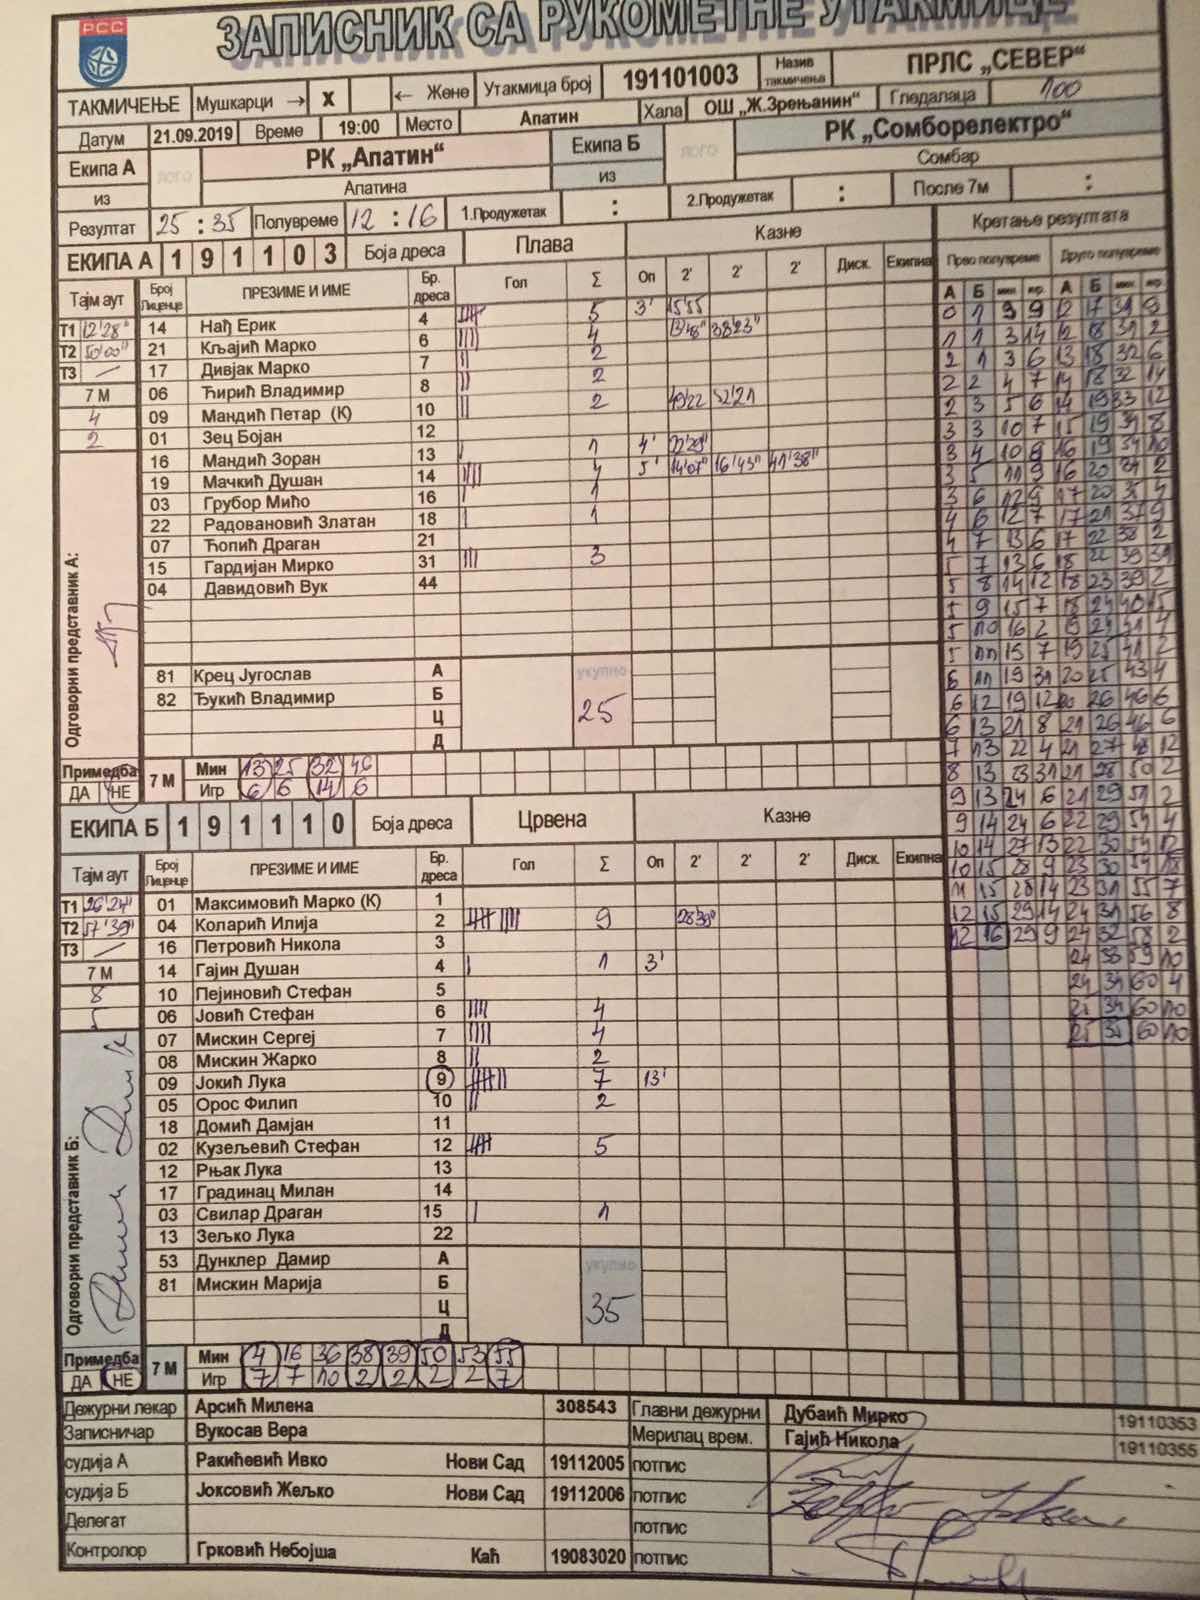 РСС
ЗАПИСНИК СА РУКОМЕТНЕ УТАКМИЦЕ
ТАКМИЧЕЊЕ Мушкарци → X ← Жене Утакмица број 191101003 Назив такмичења ПРЛС „СЕВЕР“
Датум 21.09.2019 Време 19:00 Место Апатин Хала ОШ „Ж.Зрењанин“ Гледалаца 100
Екипа А ЛОГО РК „Апатин“ Екипа Б ЛОГО РК „Сомборелектро“
из Апатина из Сомбар
Резултат 25 : 35 Полувреме 12 : 16 1.Продужетак : 2.Продужетак : После 7м :
ЕКИПА А 1 9 1 1 0 3 Боја дреса Плава Казне Кретање резултата
Прво полувреме Друго полувреме
Тајм аут Број Лиценце ПРЕЗИМЕ И ИМЕ Бр. дреса Гол Σ Оп 2' 2' 2' Диск. Екипна А Б мин иг. А Б мин иг.
Т1 12'28" 14 Нађ Ерик 4 5 3' 15'55
Т2 50'00" 21 Кљајић Марко 6 4 13'48" 38'23"
Т3 — 17 Дивјак Марко 7 2
7 М 06 Ћирић Владимир 8 2
4 09 Мандић Петар (К) 10 2 49'22 52'21
2 01 Зец Бојан 12
16 Мандић Зоран 13 1 4' 22'29"
19 Мачкић Душан 14 4 5' 14'07" 16'43" 41'38"
03 Грубор Мићо 16 1
22 Радовановић Златан 18 1
07 Ћопић Драган 21
15 Гардијан Мирко 31 3
04 Давидовић Вук 44
Одговорни представник А:
81 Крец Југослав А укупно
82 Ђукић Владимир Б 25
Ц
Д
Примедба 7 М Мин 13 25 32 46
ДА НЕ Игр 6 6 14 6
ЕКИПА Б 1 9 1 1 1 0 Боја дреса Црвена Казне
Тајм аут Број Лиценце ПРЕЗИМЕ И ИМЕ Бр. дреса Гол Σ Оп 2' 2' 2' Диск. Екипна
Т1 26'24" 01 Максимовић Марко (К) 1
Т2 57'39" 04 Коларић Илија 2 9 28'39"
Т3 — 16 Петровић Никола 3
7 М 14 Гајин Душан 4 1 3'
8 10 Пејиновић Стефан 5
5 06 Јовић Стефан 6 4
07 Мискин Сергеј 7 4
08 Мискин Жарко 8 2
09 Јокић Лука 9 7 13'
05 Орос Филип 10 2
18 Домић Дамјан 11
02 Кузељевић Стефан 12 5
12 Рњак Лука 13
17 Градинац Милан 14
03 Свилар Драган 15 1
13 Зељко Лука 22
Одговорни представник Б:
53 Дунклер Дамир А укупно
81 Мискин Марија Б 35
Ц
Д
Примедба 7 М Мин 4 16 36 38 39 50 53 55
ДА НЕ Игр 7 7 10 2 2 2 2 7
0 1 3 9 12 17 31 9
1 1 3 14 12 18 31 2
2 1 3 6 13 18 32 6
2 2 4 7 14 18 32 14
2 3 5 6 14 19 33 12
3 3 10 7 15 19 34 8
3 4 10 8 16 19 34 10
3 5 11 9 16 20 34 2
3 6 12 9 17 20 35 4
4 6 12 7 17 21 37 9
4 7 13 6 17 22 38 2
5 7 13 6 18 22 39 31
5 8 14 12 18 23 39 2
5 9 15 7 18 24 40 15
5 10 16 2 19 24 41 4
5 11 15 7 19 25 41 2
6 11 19 31 20 25 43 4
6 12 19 12 20 26 46 6
6 13 21 8 21 26 46 6
7 13 22 4 21 27 48 12
8 13 23 31 21 28 50 2
9 13 24 6 21 29 51 2
9 14 24 6 22 29 54 4
10 14 27 13 22 30 54 12
10 15 28 9 23 30 54 18
11 15 28 14 23 31 55 7
12 15 29 14 24 31 56 8
12 16 29 9 24 32 58 2
24 33 59 10
24 34 60 4
25 34 60 10
25 35 60 10
Дежурни лекар Арсић Милена 308543 Главни дежурни Дубаић Мирко 19110353
Записничар Вукосав Вера Мерилац врем. Гајић Никола 19110355
судија А Ракићевић Ивко Нови Сад 19112005 потпис
судија Б Јоксовић Жељко Нови Сад 19112006 потпис
Делегат потпис
Контролор Грковић Небојша Каћ 19083020 потпис